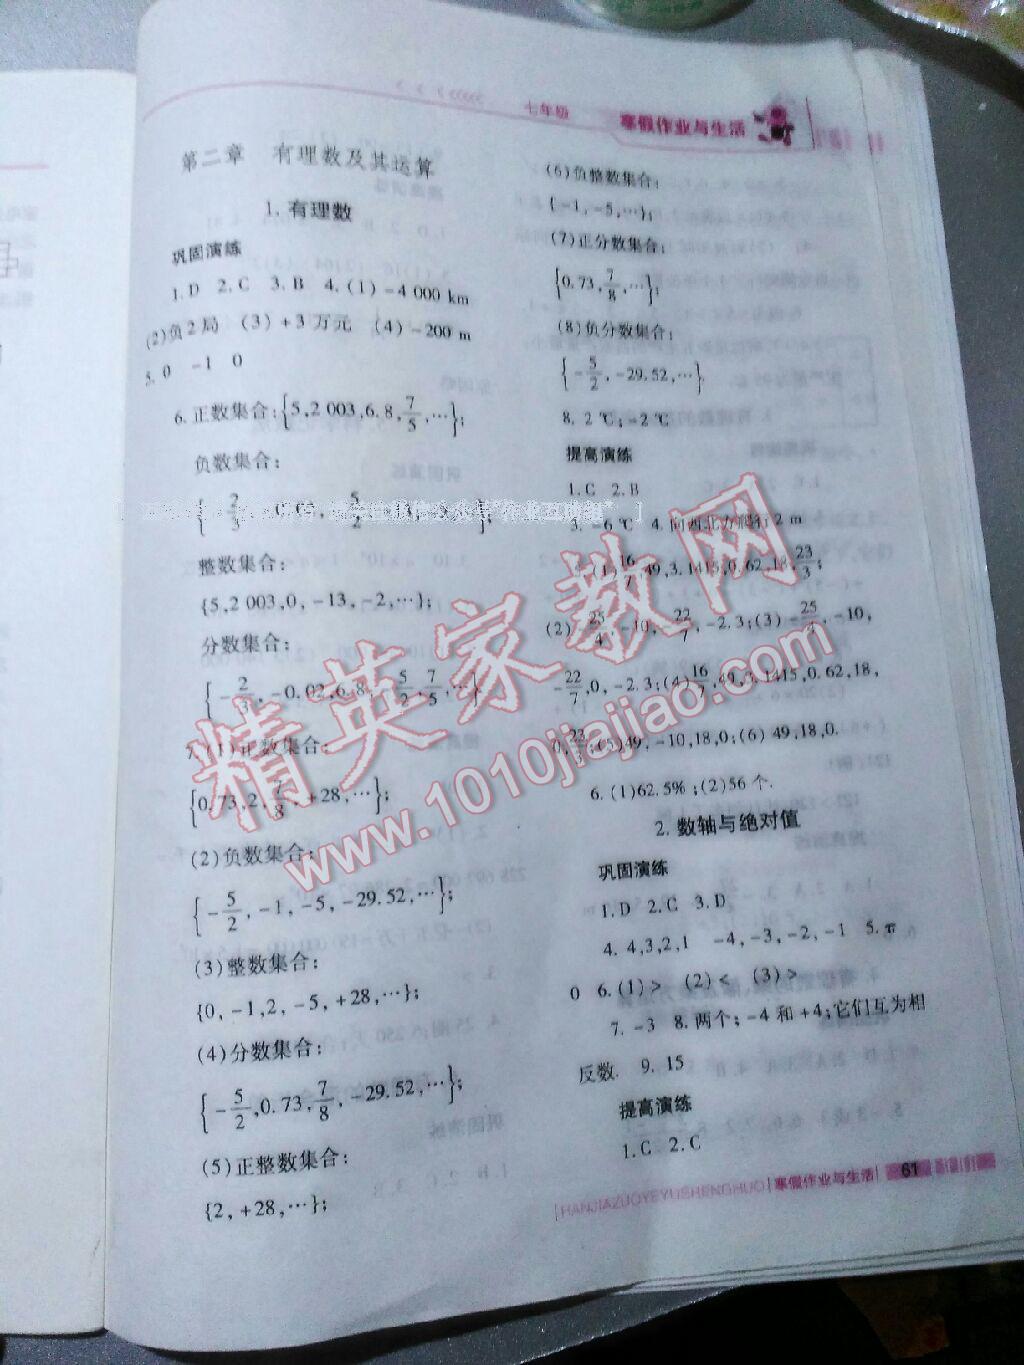 七年级 寒假作业与生活
第二章 有理数及其运算
1. 有理数
巩固演练
1. D 2. C 3. B 4. (1) -4 000 km
(2)负2局 (3) +3万元 (4) -200 m
5. 0 -1 0
6. 正数集合:{5,2 003,6.8,7/5,…};
负数集合:
整数集合:
{5,2 003,0,-13,-2,…};
分数集合:
{-2/3,-0.02,6.8,-5/2,7/5,…}
7. (1)正数集合:
{0.73,2,7/8,+28,…};
(2)负数集合:
{-5/2,-1,-5,-29.52,…};
(3)整数集合:
{0,-1,2,-5,+28,…};
(4)分数集合:
{-5/2,0.73,7/8,-29.52,…};
(5)正整数集合:
{2,+28,…};
(6)负整数集合:
{-1,-5,…};
(7)正分数集合:
{0.73,7/8,…};
(8)负分数集合:
{-5/2,-29.52,…}
8. 2 ℃;-2 ℃
提高演练
1. C 2. B
3. -6 ℃ 4. 向西北方爬行2 m
16/7,49,3.1415,0.62,18,23/3;
(2)-25/4,-10,-22/7,-2.3;(3)-25/4,-10,
-22/7,0,-2.3;(4)16/7,49,3.1415,0.62,18,
0,23/3;(5)49,-10,18,0;(6)49,18,0.
6. (1)62.5%;(2)56个.
2. 数轴与绝对值
巩固演练
1. D 2. C 3. D
4. 4,3,2,1 -4,-3,-2,-1 5. π
0 6. (1)> (2)< (3)>
7. -3 8. 两个;-4和+4;它们互为相
反数. 9. 15
提高演练
1. C 2. C
HANJIAZUOYEYUSHENGHUO 寒假作业与生活 61
精英家教网
www.1010jiajiao.com